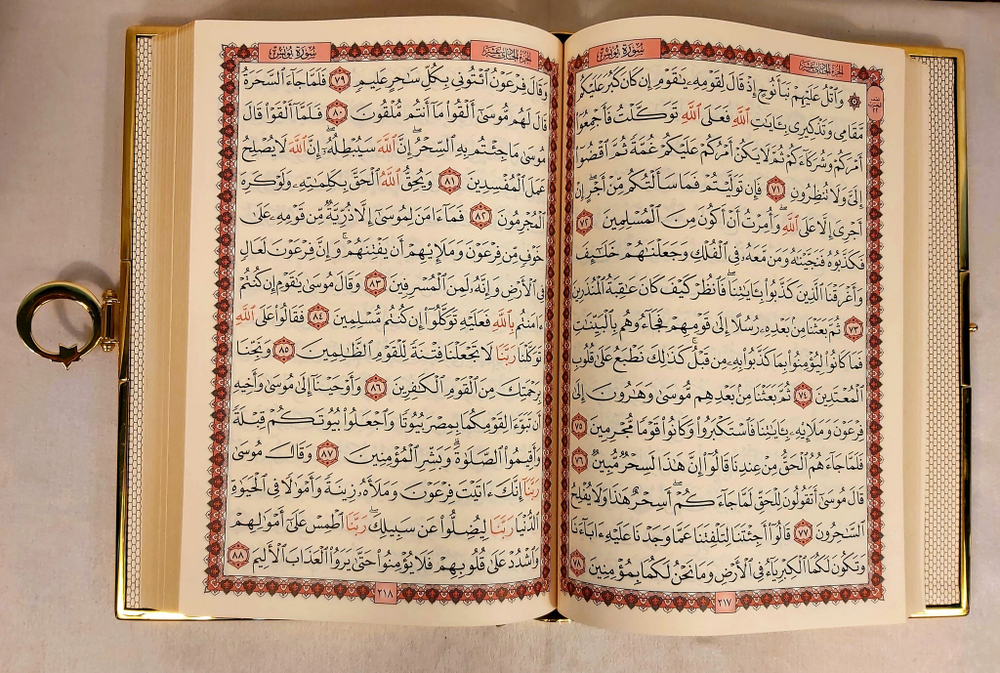 سورة يونس
الجزء الحادي عشر
وَٱتْلُ عَلَيْهِمْ نَبَأَ نُوحٍ إِذْ قَالَ لِقَوْمِهِۦ يَٰقَوْمِ إِن كَانَ كَبُرَ عَلَيْكُم
مَّقَامِى وَتَذْكِيرِى بِـَٔايَٰتِ ٱللَّهِ فَعَلَى ٱللَّهِ تَوَكَّلْتُ فَأَجْمِعُوٓا۟
أَمْرَكُمْ وَشُرَكَآءَكُمْ ثُمَّ لَا يَكُنْ أَمْرُكُمْ عَلَيْكُمْ غُمَّةً ثُمَّ ٱقْضُوٓا۟
إِلَىَّ وَلَا تُنظِرُونِ ٧١ فَإِن تَوَلَّيْتُمْ فَمَا سَأَلْتُكُم مِّنْ أَجْرٍ إِنْ
أَجْرِىَ إِلَّا عَلَى ٱللَّهِ وَأُمِرْتُ أَنْ أَكُونَ مِنَ ٱلْمُسْلِمِينَ ٧٢
فَكَذَّبُوهُ فَنَجَّيْنَٰهُ وَمَن مَّعَهُۥ فِى ٱلْفُلْكِ وَجَعَلْنَٰهُمْ خَلَٰٓئِفَ
وَأَغْرَقْنَا ٱلَّذِينَ كَذَّبُوا۟ بِـَٔايَٰتِنَا فَٱنظُرْ كَيْفَ كَانَ عَٰقِبَةُ ٱلْمُنذَرِينَ
٧٣ ثُمَّ بَعَثْنَا مِنۢ بَعْدِهِۦ رُسُلًا إِلَىٰ قَوْمِهِمْ فَجَآءُوهُم بِٱلْبَيِّنَٰتِ
فَمَا كَانُوا۟ لِيُؤْمِنُوا۟ بِمَا كَذَّبُوا۟ بِهِۦ مِن قَبْلُ كَذَٰلِكَ نَطْبَعُ عَلَىٰ قُلُوبِ
ٱلْمُعْتَدِينَ ٧٤ ثُمَّ بَعَثْنَا مِنۢ بَعْدِهِم مُّوسَىٰ وَهَٰرُونَ إِلَىٰ
فِرْعَوْنَ وَمَلَإِي۟هِۦ بِـَٔايَٰتِنَا فَٱسْتَكْبَرُوا۟ وَكَانُوا۟ قَوْمًا مُّجْرِمِينَ ٧٥
فَلَمَّا جَآءَهُمُ ٱلْحَقُّ مِنْ عِندِنَا قَالُوٓا۟ إِنَّ هَٰذَا لَسِحْرٌ مُّبِينٌ ٧٦
قَالَ مُوسَىٰٓ أَتَقُولُونَ لِلْحَقِّ لَمَّا جَآءَكُمْ أَسِحْرٌ هَٰذَا وَلَا يُفْلِحُ
ٱلسَّٰحِرُونَ ٧٧ قَالُوٓا۟ أَجِئْتَنَا لِتَلْفِتَنَا عَمَّا وَجَدْنَا عَلَيْهِ ءَابَآءَنَا
وَتَكُونَ لَكُمَا ٱلْكِبْرِيَآءُ فِى ٱلْأَرْضِ وَمَا نَحْنُ لَكُمَا بِمُؤْمِنِينَ ٧٨
٢١٧
الجزء الحادي عشر
سورة يونس
وَقَالَ فِرْعَوْنُ ٱئْتُونِى بِكُلِّ سَٰحِرٍ عَلِيمٍ ٧٩ فَلَمَّا جَآءَ ٱلسَّحَرَةُ
قَالَ لَهُم مُّوسَىٰٓ أَلْقُوا۟ مَآ أَنتُم مُّلْقُونَ ٨٠ فَلَمَّآ أَلْقَوْا۟ قَالَ
مُوسَىٰ مَا جِئْتُم بِهِ ٱلسِّحْرُ إِنَّ ٱللَّهَ سَيُبْطِلُهُۥٓ إِنَّ ٱللَّهَ لَا يُصْلِحُ
عَمَلَ ٱلْمُفْسِدِينَ ٨١ وَيُحِقُّ ٱللَّهُ ٱلْحَقَّ بِكَلِمَٰتِهِۦ وَلَوْ كَرِهَ
ٱلْمُجْرِمُونَ ٨٢ فَمَآ ءَامَنَ لِمُوسَىٰٓ إِلَّا ذُرِّيَّةٌ مِّن قَوْمِهِۦ عَلَىٰ
خَوْفٍ مِّن فِرْعَوْنَ وَمَلَإِي۟هِمْ أَن يَفْتِنَهُمْ وَإِنَّ فِرْعَوْنَ لَعَالٍ
فِى ٱلْأَرْضِ وَإِنَّهُۥ لَمِنَ ٱلْمُسْرِفِينَ ٨٣ وَقَالَ مُوسَىٰ يَٰقَوْمِ إِن كُنتُمْ
ءَامَنتُم بِٱللَّهِ فَعَلَيْهِ تَوَكَّلُوٓا۟ إِن كُنتُم مُّسْلِمِينَ ٨٤ فَقَالُوا۟ عَلَى ٱللَّهِ
تَوَكَّلْنَا رَبَّنَا لَا تَجْعَلْنَا فِتْنَةً لِّلْقَوْمِ ٱلظَّٰلِمِينَ ٨٥ وَنَجِّنَا
بِرَحْمَتِكَ مِنَ ٱلْقَوْمِ ٱلْكَٰفِرِينَ ٨٦ وَأَوْحَيْنَآ إِلَىٰ مُوسَىٰ وَأَخِيهِ
أَن تَبَوَّءَا لِقَوْمِكُمَا بِمِصْرَ بُيُوتًا وَٱجْعَلُوا۟ بُيُوتَكُمْ قِبْلَةً
وَأَقِيمُوا۟ ٱلصَّلَوٰةَ وَبَشِّرِ ٱلْمُؤْمِنِينَ ٨٧ وَقَالَ مُوسَىٰ
رَبَّنَآ إِنَّكَ ءَاتَيْتَ فِرْعَوْنَ وَمَلَأَهُۥ زِينَةً وَأَمْوَٰلًا فِى ٱلْحَيَوٰةِ
ٱلدُّنْيَا رَبَّنَا لِيُضِلُّوا۟ عَن سَبِيلِكَ رَبَّنَا ٱطْمِسْ عَلَىٰٓ أَمْوَٰلِهِمْ
وَٱشْدُدْ عَلَىٰ قُلُوبِهِمْ فَلَا يُؤْمِنُوا۟ حَتَّىٰ يَرَوُا۟ ٱلْعَذَابَ ٱلْأَلِيمَ ٨٨
٢١٨